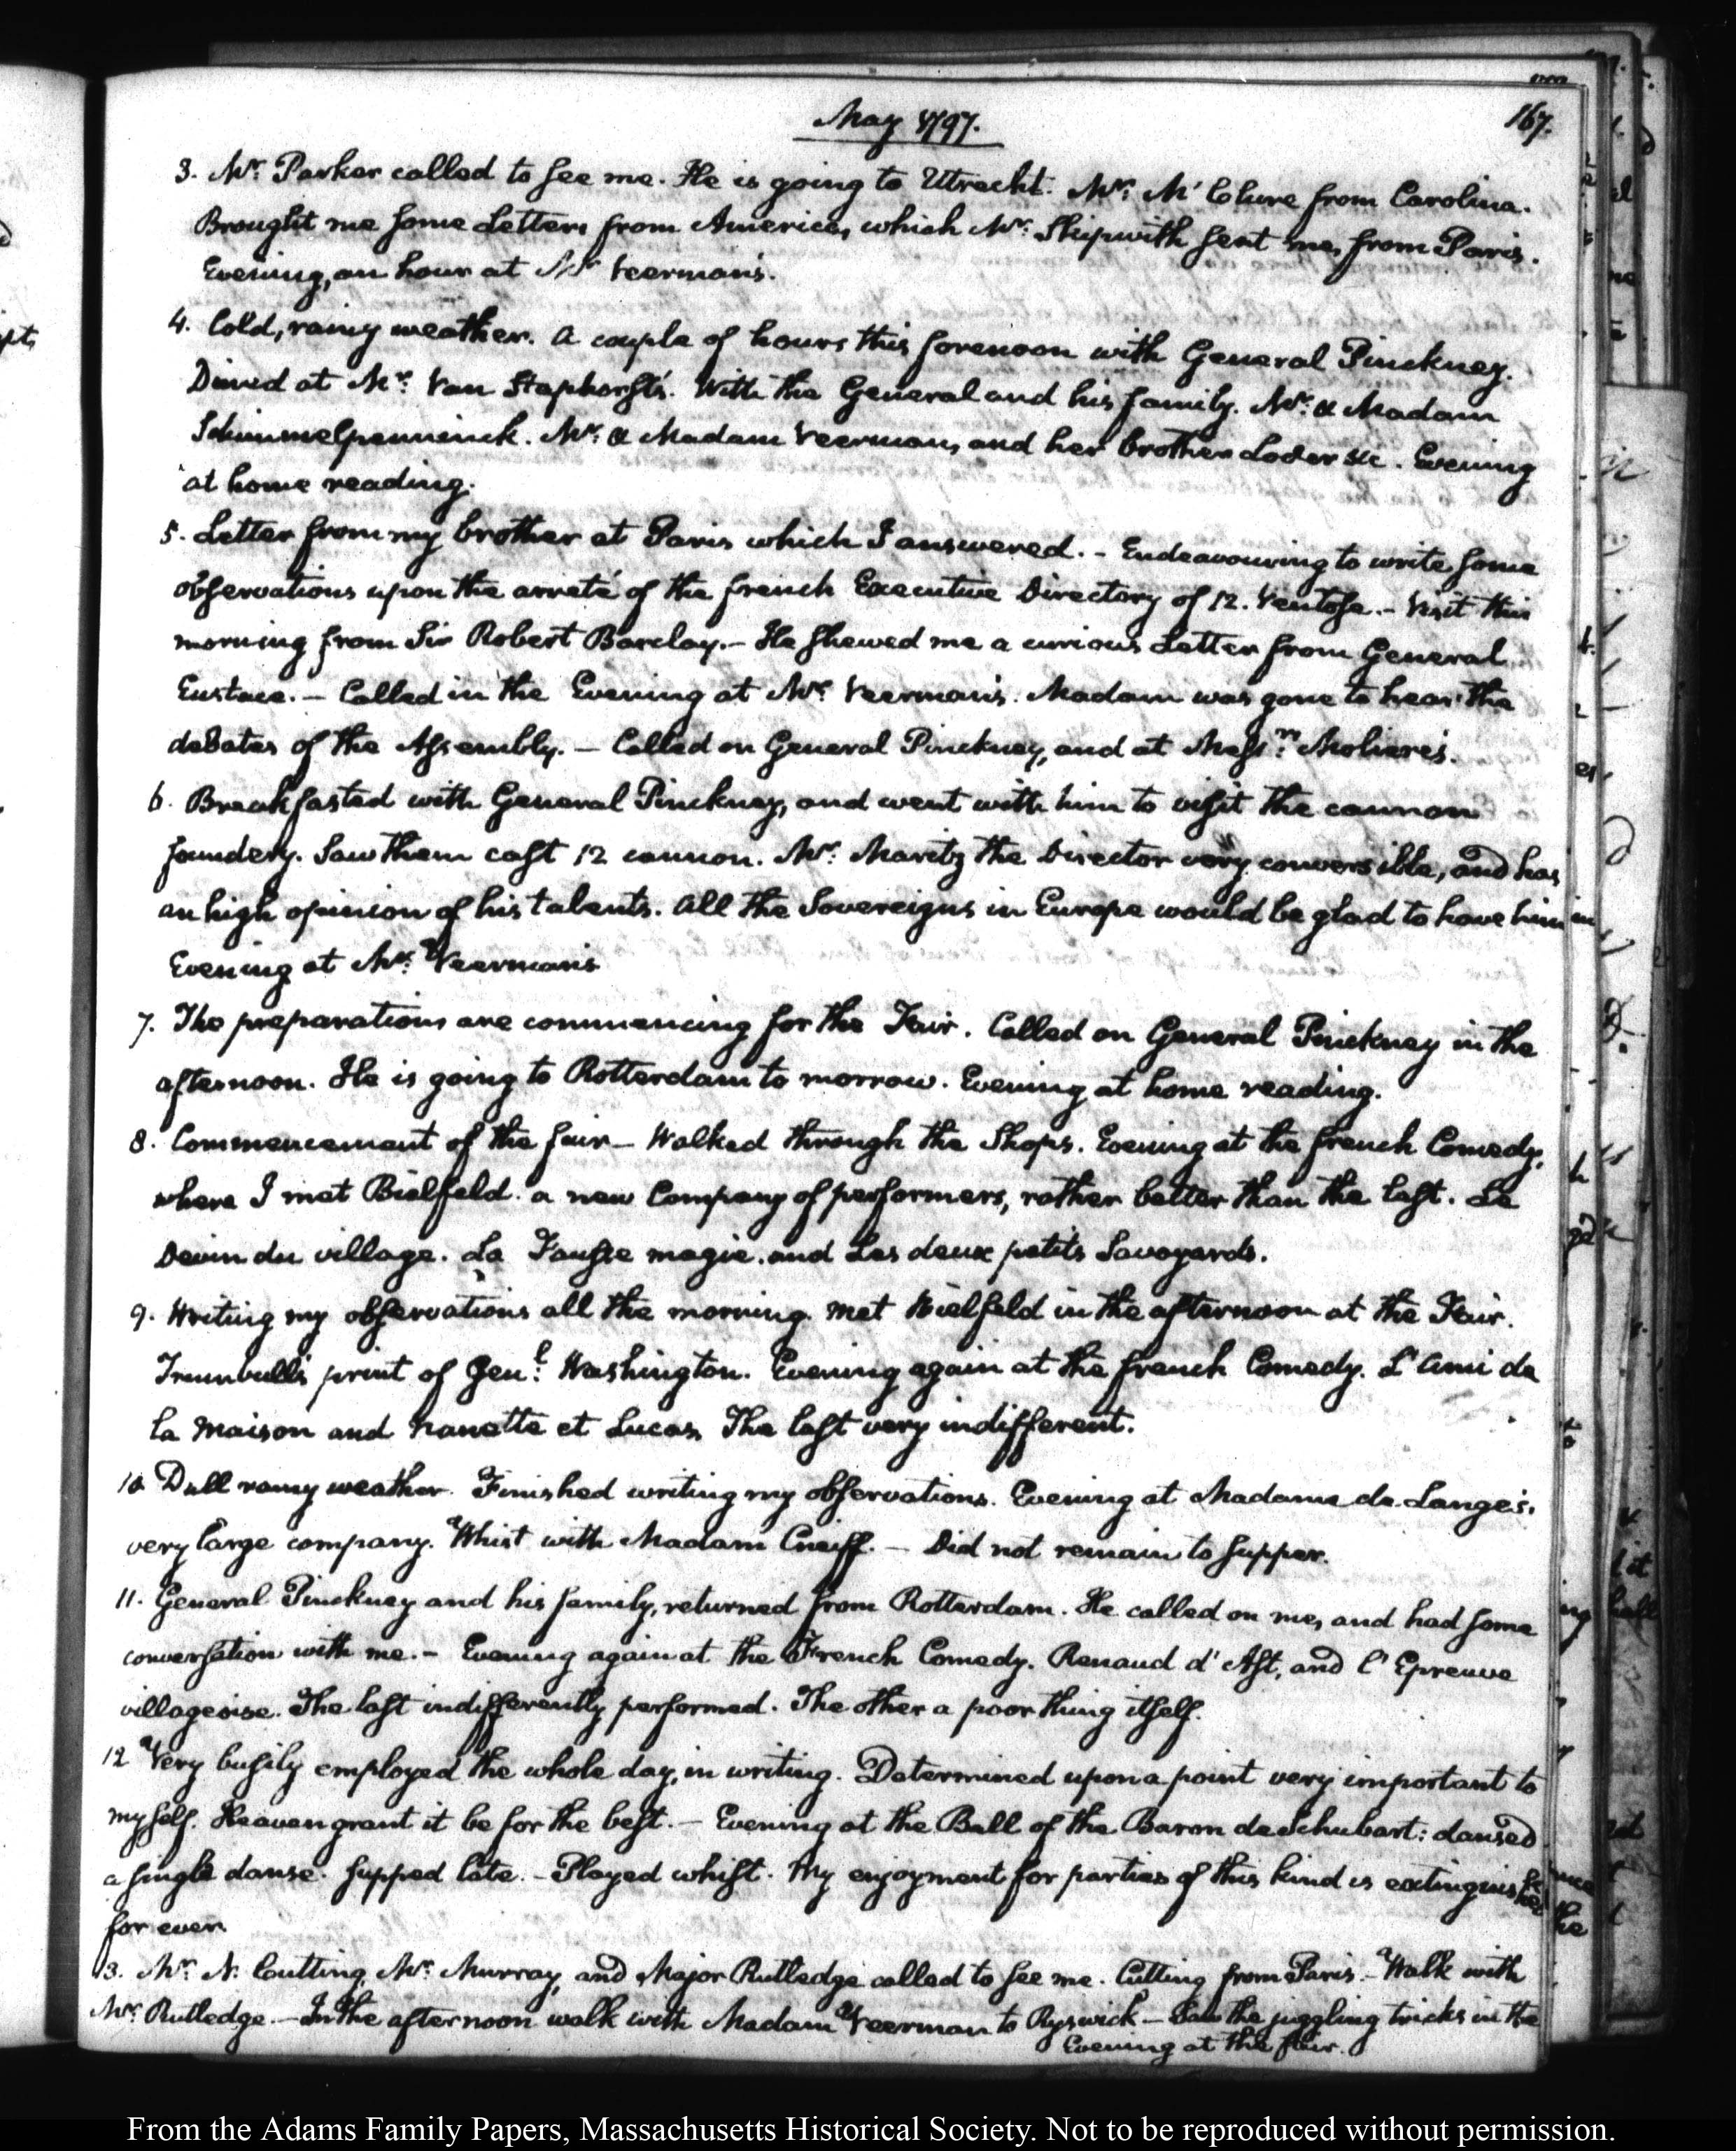 May 1797.
167.
3. Mr: Parker called to see me. He is going to Utrecht. Mr: Mc'Clure from Carolina.
Brought me some Letters from America, which Mr: Skipwith sent me, from Paris.
Evening, an hour at Mr Veerman's.
4. Cold, rainy weather. A couple of hours this forenoon with General Pinckney.
Dined at Mr: Van Staphorst's. With the General and his family. Mr: & Madam
Schimmelpenninck. Mr: & Madam Veerman, and her brother Loder &c. Evening
at home reading.
5. Letter from my brother at Paris which I answered. - Endeavouring to write some
observations upon the arreté of the french Executive Directory of 12. Ventose. - Visit this
morning from Sir Robert Barclay. - He shewed me a curious Letter from General
Eustace. - Called in the Evening at Mr: Veerman's. Madam was gone to hear the
debates of the Assembly. - Called on General Pinckney, and at Messrs: Moliere's.
6. Breakfasted with General Pinckney, and went with him to visit the cannon
foundery. Saw them cast 12 cannon. Mr: Maritz the Director very conversible, and has
an high opinion of his talents. All the Sovereigns in Europe would be glad to have him
Evening at Mr: Veerman's
7. The preparations are commencing for the Fair. Called on General Pinckney in the
afternoon. He is going to Rotterdam to morrow. Evening at home reading.
8. Commencement of the fair - Walked through the Shops. Evening at the french Comedy,
where I met Bielfeld. a new Company of performers, rather better than the last. Le
Devin du village. La Fausse magie. and Les deux petits Savoyards.
9. Writing my observations all the morning. Met Bielfeld in the afternoon at the Fair.
Trumbull's print of Genl: Washington. Evening again at the french Comedy. L'Ami de
la Maison and Nanette et Lucas. The last very indifferent.
10 Dull rainy weather. Finished writing my observations. Evening at Madame de Lange's.
very large company. Whist with Madam Cneiff. - Did not remain to supper.
11. General Pinckney and his family, returned from Rotterdam. He called on me, and had some
conversation with me. - Evening again at the French Comedy. Renaud d'Ast, and l'Epreuve
villageoise. The last indifferently performed. The other a poor thing itself.
12 Very busily employed the whole day, in writing. Determined upon a point very important to
myself. Heaven grant it be for the best. - Evening at the Ball of the Baron de Schubart: dansed
a single danse. supped late. - Played whist. My enjoyment for parties of this kind is extinguished
for ever.
13. Mr: N. Cutting, Mr: Murray, and Major Rutledge called to see me. Cutting from Paris. - Walk with
Mr: Rutledge. - In the afternoon walk with Madam Veerman to Ryswick - Saw the juggling tricks in the
Evening at the fair.
From the Adams Family Papers, Massachusetts Historical Society. Not to be reproduced without permission.